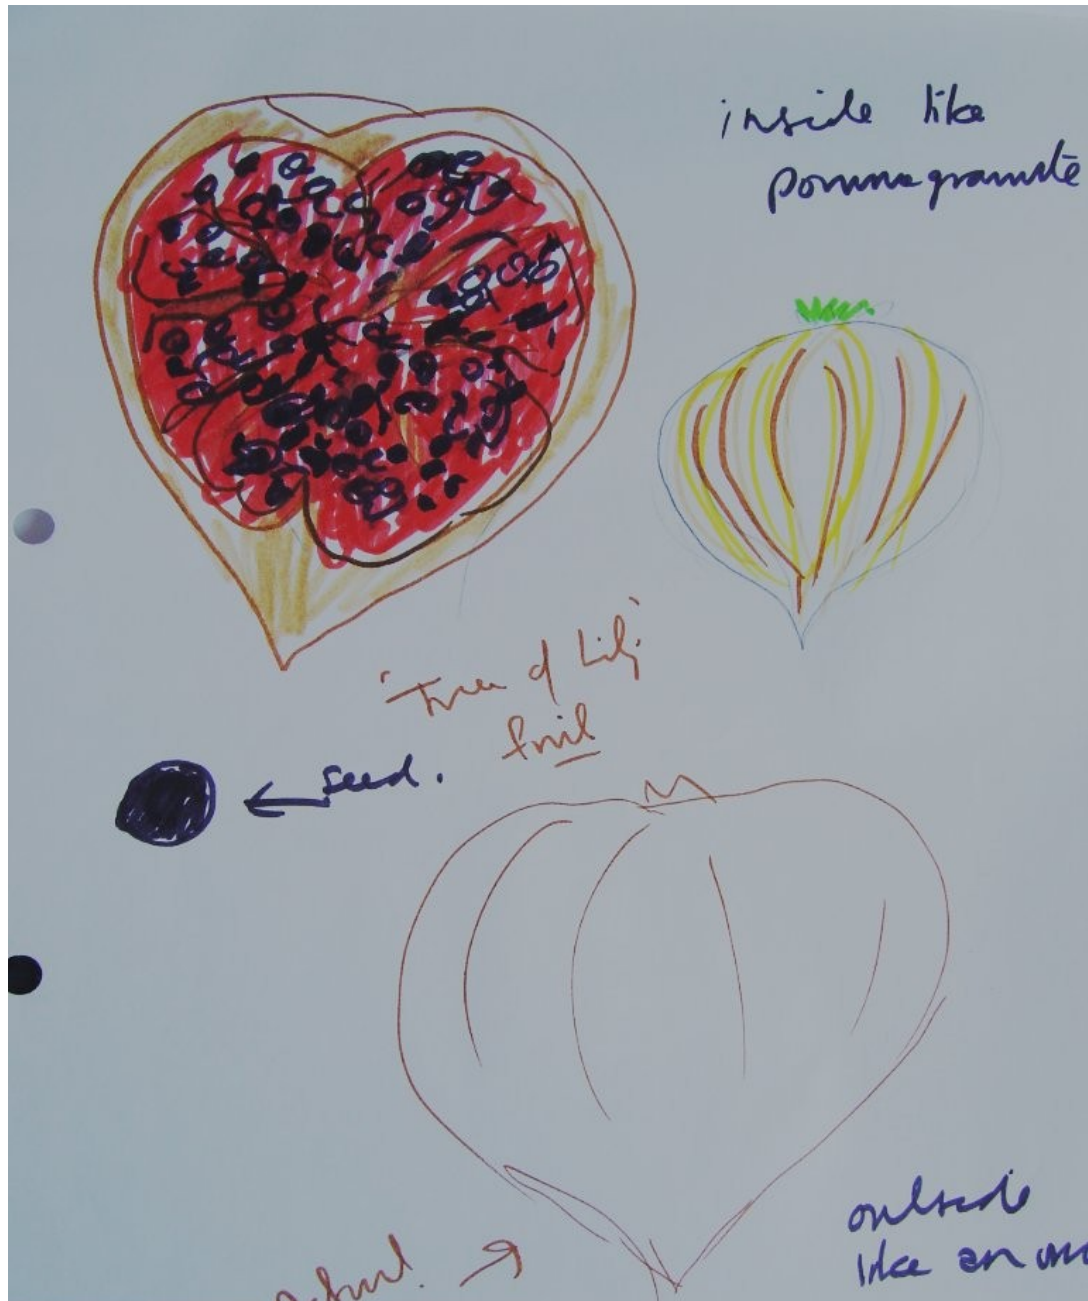 inside like
pommagranate
'Tree of Life'
fruit
seed.
outside
like an